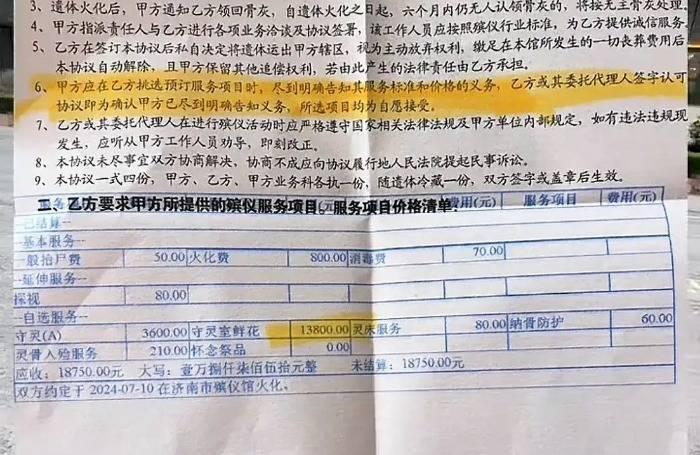 3、遗体火化后，甲方通知乙方领回骨灰，自遗体火化之日起，六个月内仍无人认领骨灰的，将按无主骨灰处
4、甲方指派责任人与乙方进行各项业务洽谈及协议签署，该工作人员应按照殡仪行业标准，为乙方提供诚信服务
5、乙方在签订本协议后私自决定将遗体运出甲方辖区，视为主动放弃权利，缴足在本馆所发生的一切丧葬费用后
本协议自动解除，且甲方保留其他追偿权利，若由此产生的法律责任由乙方承担。
6、甲方应在乙方挑选预订服务项目时，尽到明确告知其服务标准和价格的义务，乙方或其委托代理人签字认可
协议即为确认甲方已尽到明确告知义务，所选项目均为自愿接受。
7、乙方或其委托代理人在进行殡仪活动时应严格遵守国家相关法律法规及甲方单位内部规定，如有违法违规现
发生，应听从甲方工作人员劝导，即刻改正。
8、本协议未尽事宜双方协商解决，协商不成应向协议履行地人民法院提起民事诉讼。
9、本协议一式四份，甲方、乙方、甲方业务科各执一份，随遗体冷藏一份，双方签字或盖章后生效。
二、乙方要求甲方所提供的殡仪服务项目、服务项目价格清单：
费用(元) 服务项目 费用(元)
--已结算--
--基本服务--
一般抬尸费 50.00 火化费 800.00 消毒费 70.00
--延伸服务--
探视 80.00
--自选服务--
守灵(A) 3600.00 守灵室鲜花 13800.00 灵床服务 80.00 纳骨防护 60.00
灵骨入殓服务 210.00 怀念祭品 0.00
应收：18750.00元 大写：壹万捌仟柒佰伍拾元整 未结算：18750.00元
双方约定于2024-07-10在济南市殡仪馆火化。